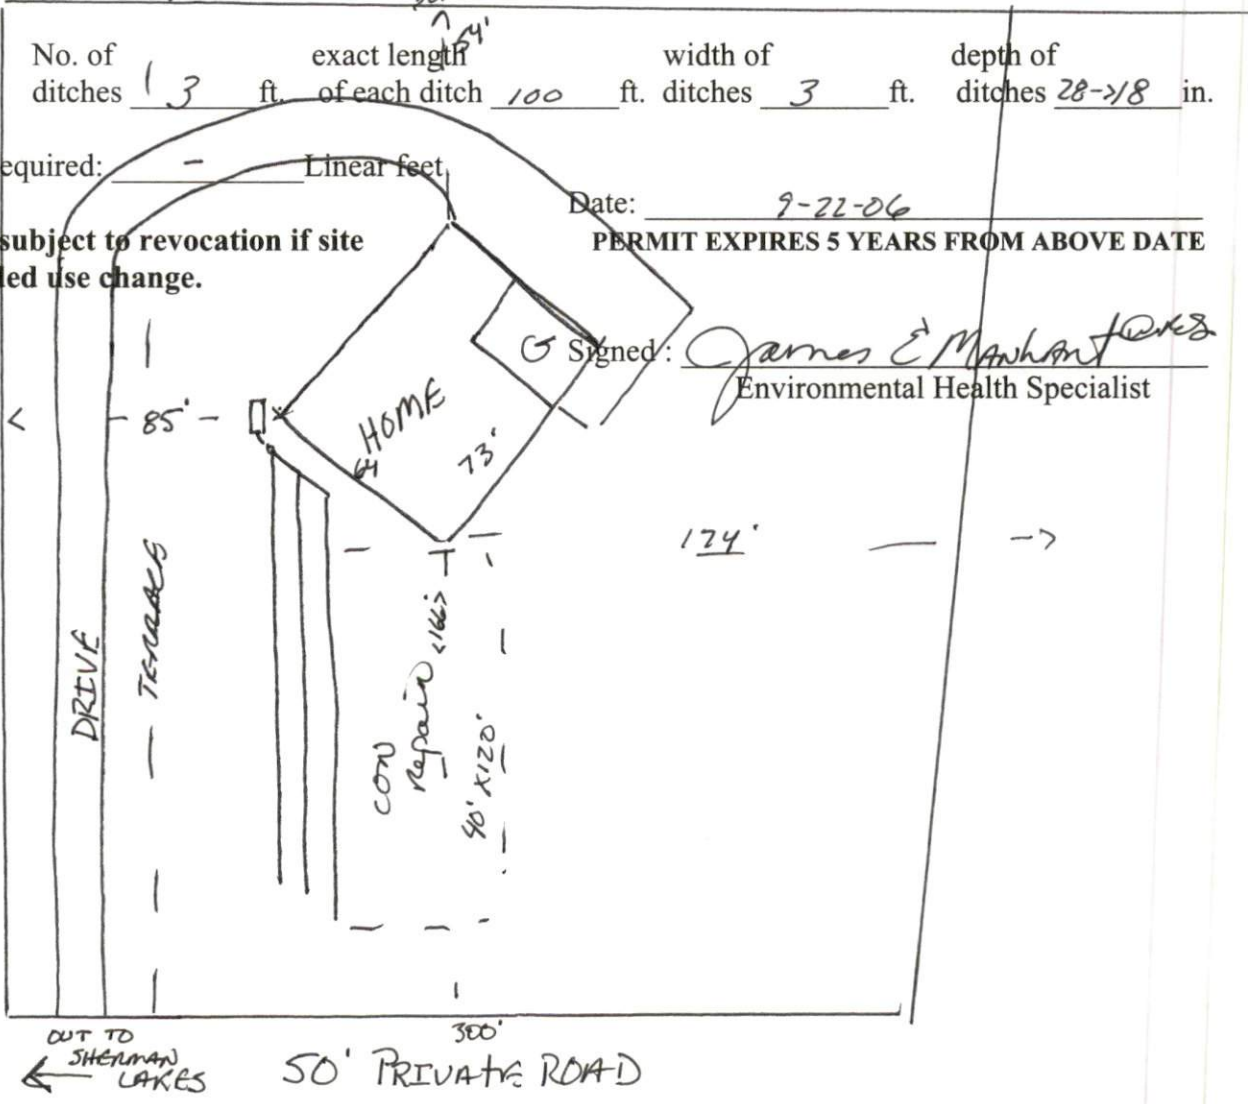 54'
No. of exact length width of depth of
ditches 3 ft. of each ditch 100 ft. ditches 3 ft. ditches 28->18 in.
equired: - Linear feet
Date: 9-22-06
subject to revocation if site PERMIT EXPIRES 5 YEARS FROM ABOVE DATE
led use change.
G Signed: James E Manhart
Environmental Health Specialist
85'
HOME
64
73'
174'
DRIVE
TERRACE
CON
Repair
<166>
40' X120'
OUT TO
SHERMAN
LAKES
300'
50' PRIVATE ROAD